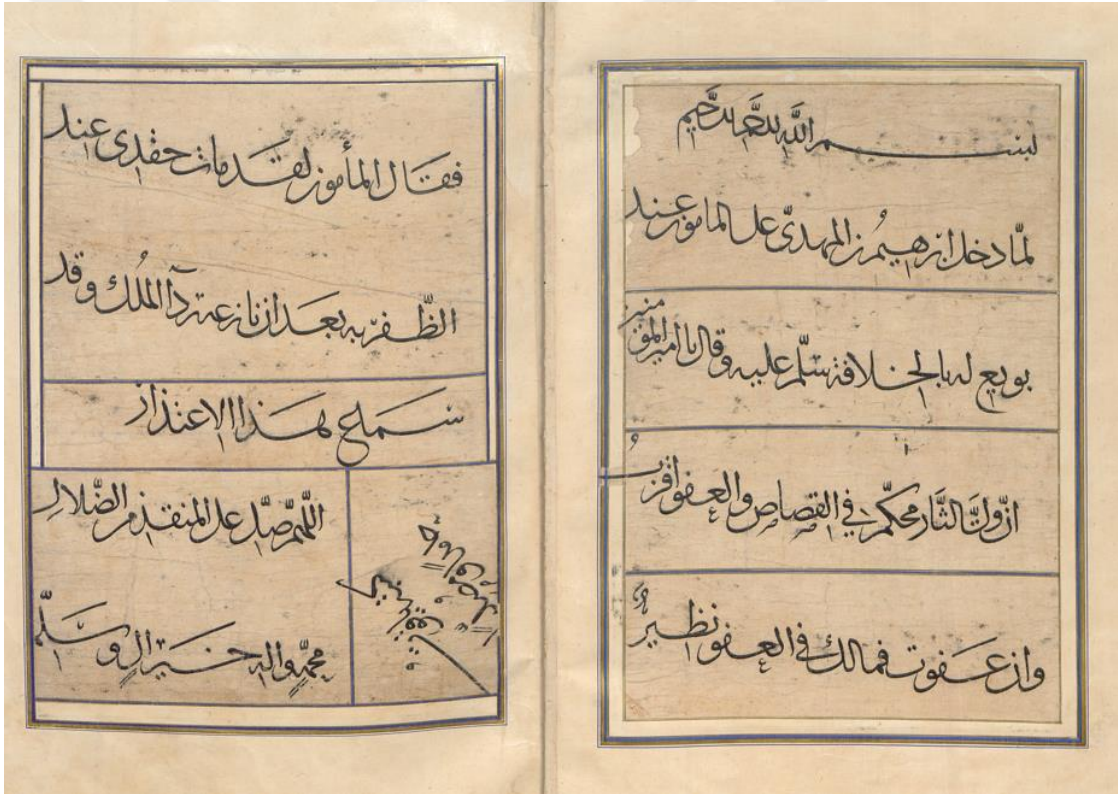 بسم الله الرحمن الرحيم
لمّا دخل ابرهيم بن المهدىّ على المامون عند
بويع له بالخلافة سلّم عليه وقال يا امير المؤمنين
انّ ولىّ الثّار محكّم فى القصاص والعفو اقربُ
وان عفوت فمالك فى العفو نظيرٌ
فقال المأمون لقد مات حقدى عند
الظّفر به بعد ان نازعته ردآ الملك وقد
سمح بهذا الاعتذار
اللهم صلّ على المنقذ من الضّلال
محمد واله خير ال وسلّم